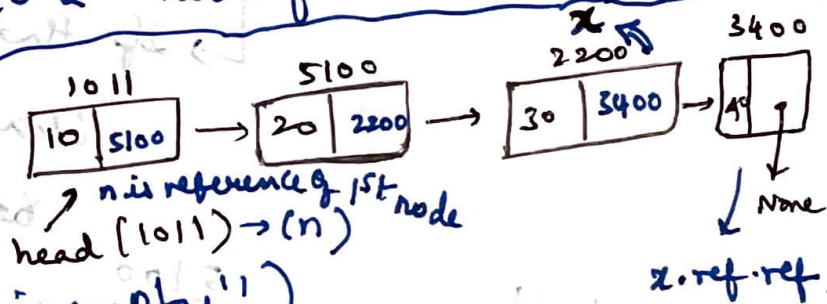 x
1011 5100 2200 3400
10 5100 → 20 2200 → 30 3400 → 40
n is reference of 1st node
None
head (1011) → (n)
x.ref.ref